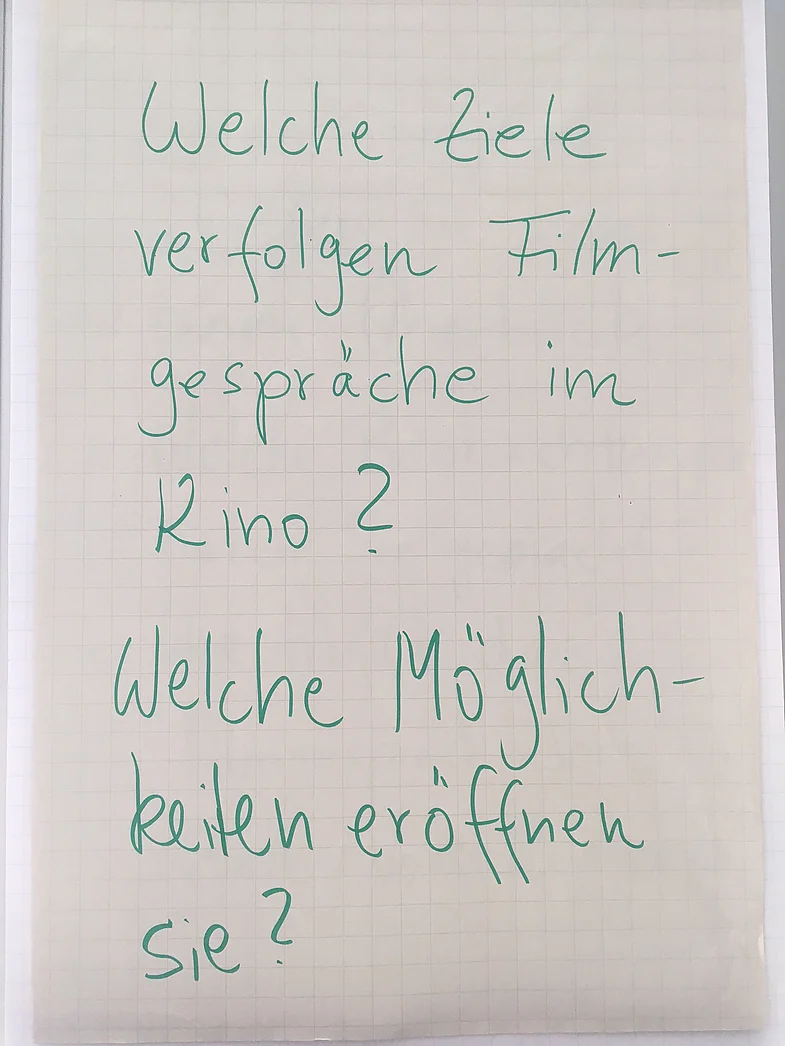 Welche Ziele
verfolgen Film-
gespräche im
Kino?
Welche Möglich-
keiten eröffnen
sie?